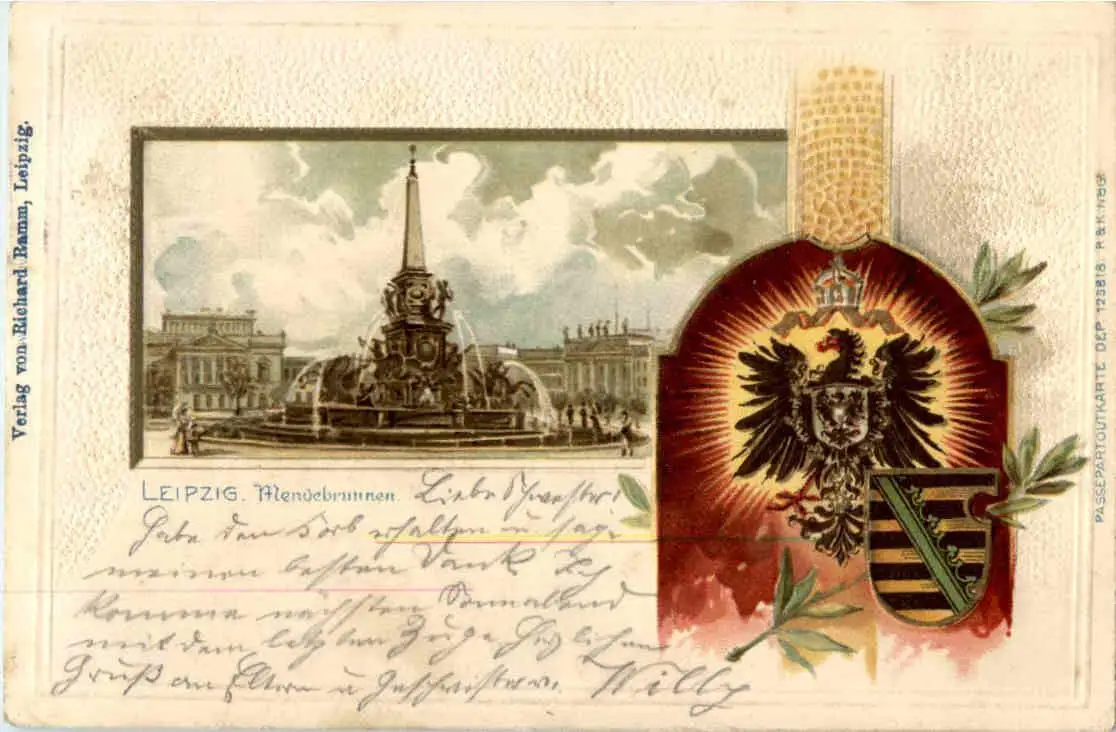 Verlag von Richard Ramm, Leipzig.
LEIPZIG. Mendebrunnen.
Liebe Schwester!
Habe den Korb erhalten u sage
meinen besten Dank Ich
komme nächsten Sonnabend
mit dem letzten Zuge Herzlichen
Gruß an Eltern u Geschwister.
Willy
PASSEPARTOUTKARTE DEP 125818. R & K NBG.